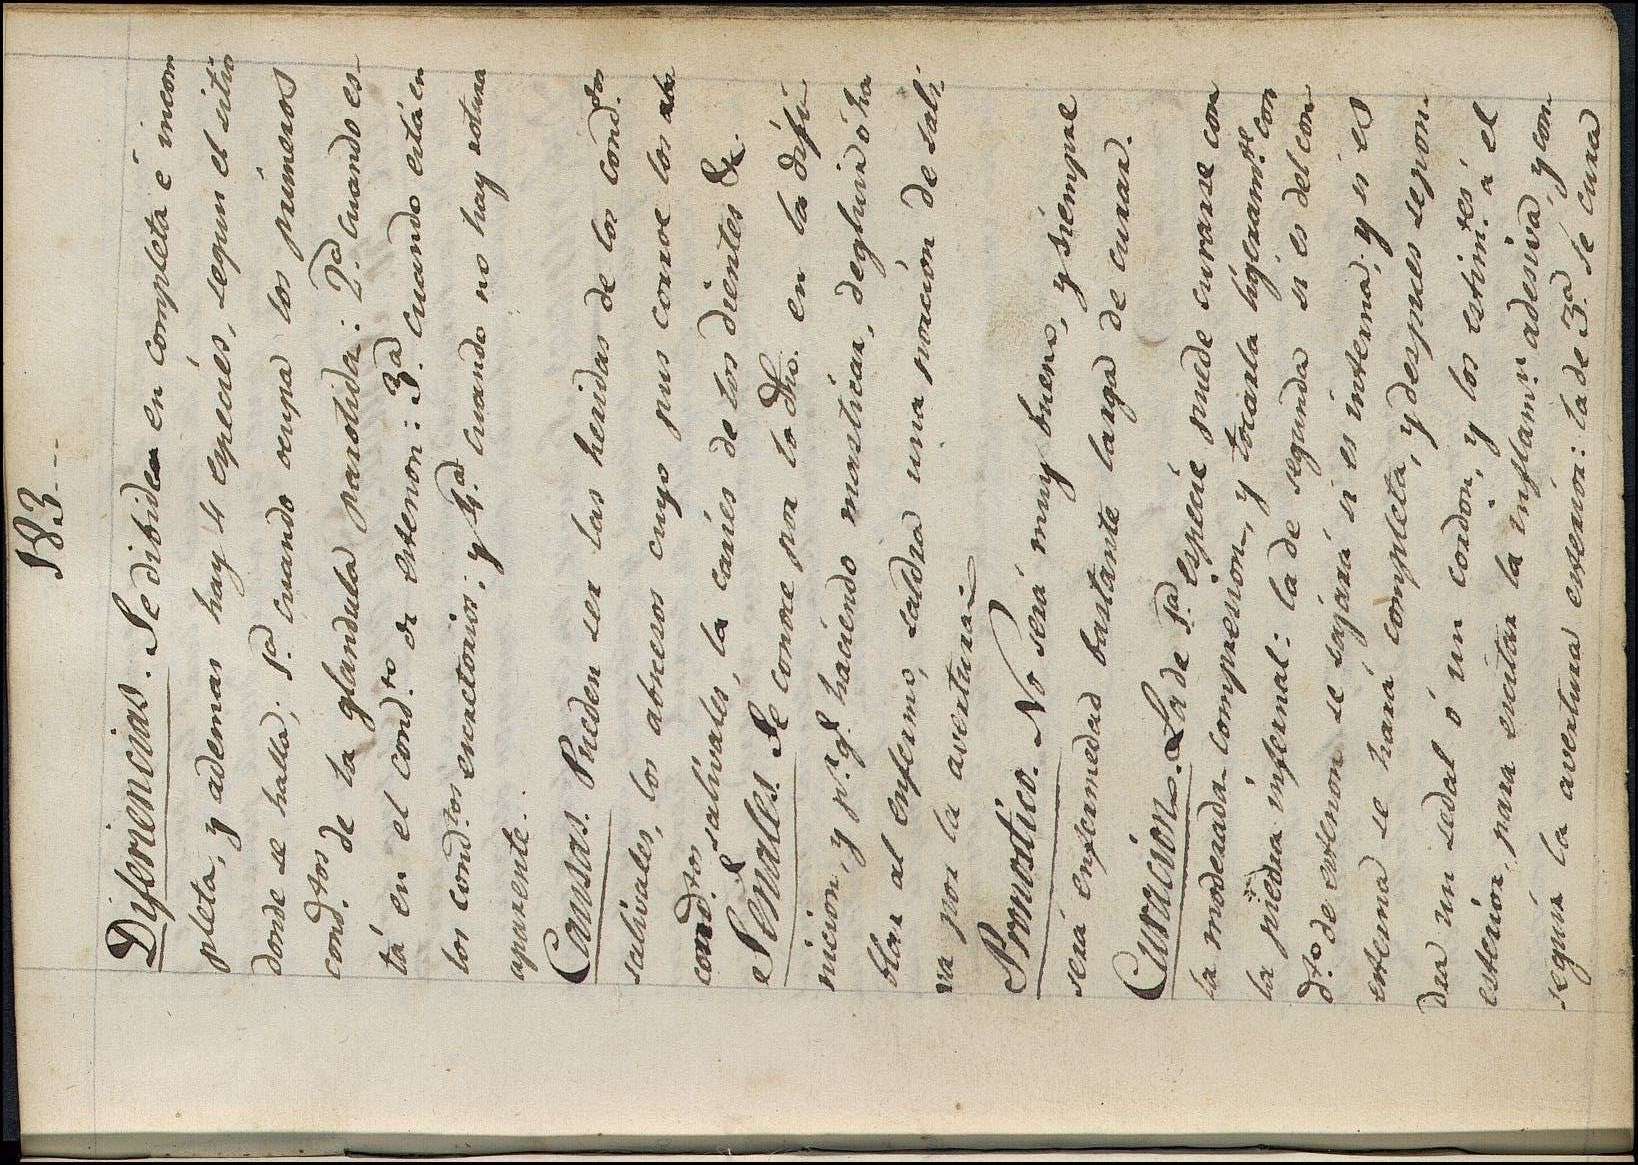 183
Diferiencias. Se dibiden en completa é incom
pleta, y ademas hay 4 especies, segun el sitio
donde se halla; 1.ª cuando ocupa los primeros
cond.tos de la glandula parotida: 2.ª cuando es-
tá en el cond.to de estenon: 3.ª cuando está en
los cond.tos excretorios; y 4.ª cuando no hay rotura
aparente.
Causas. Pueden ser las heridas de los cond.tos
salivales, los abscesos cuyo pus corroe los
cond.tos salivales, la caries de los dientes &.
Señales. Se conoce por lo dho. en la difi
nicion, y p.r q.e haciendo masticar, deglutir o ha
blar al enfermo, saldra una porcion de sali
va por la avertura
Pronostico. No será muy bueno, y siempre
será enfermedad bastante larga de curar.
Curacion. La de 1.ª especie puede curarse con
la moderada compresion, y tocarla ligeram.te con
la piedra infernal: la de segunda si es del con
d.to de estenon se sajará si es interna; y si es
externa se hará completa, y despues se pon
dra un sedal ó un cordon, y los estim.tes á el
esterior, para excitar la inflam.n adesiva, y con
seguir la avertura esterior: la de 3.ª se cura